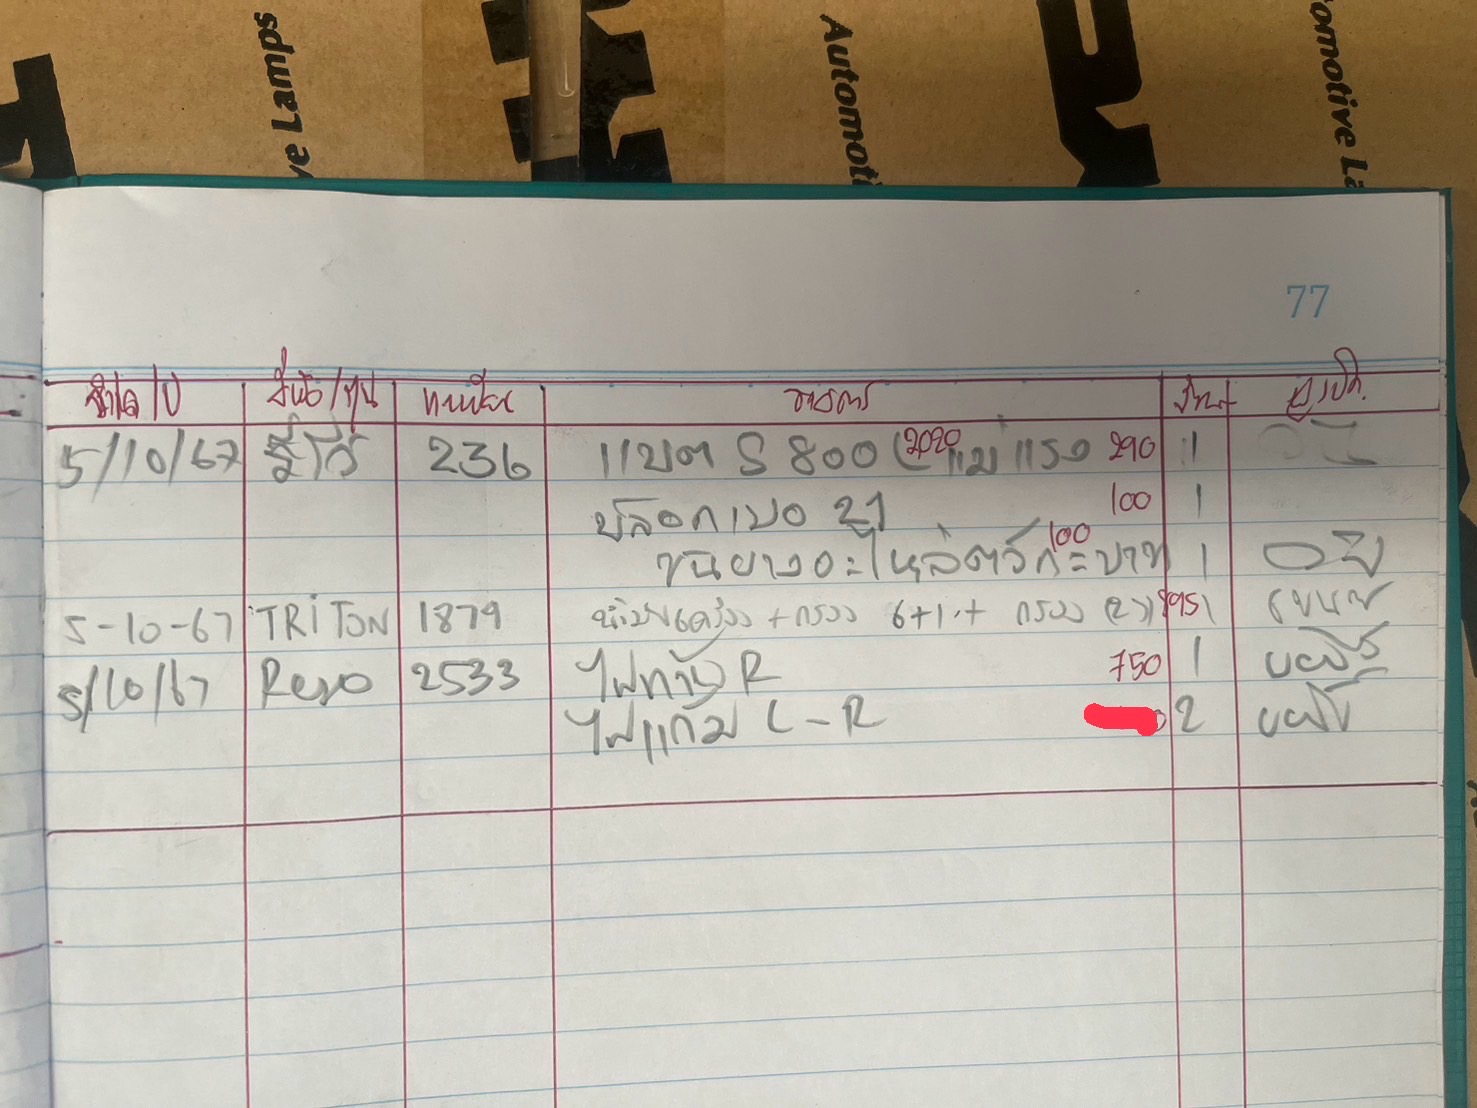 ve Lamps
Automoti
omotive La
77
ว/ด/ป ยี่ห้อ/รุ่น ทะเบียน รายการ
5/10/67 รีโว่ 236 แบต S 800 (2020 แม่แรง 290 1
บล็อกเบอ 21 100 1
ขันยางอะไหล่ตัวกะบาท 100 1
5-10-67 TRITON 1879 น้ำมันเครื่อง + กรอง 6+1 + กรอง 1
5/10/67 Revo 2533 ไฟท้าย R 750 1
ไฟแก้ม L-R 2